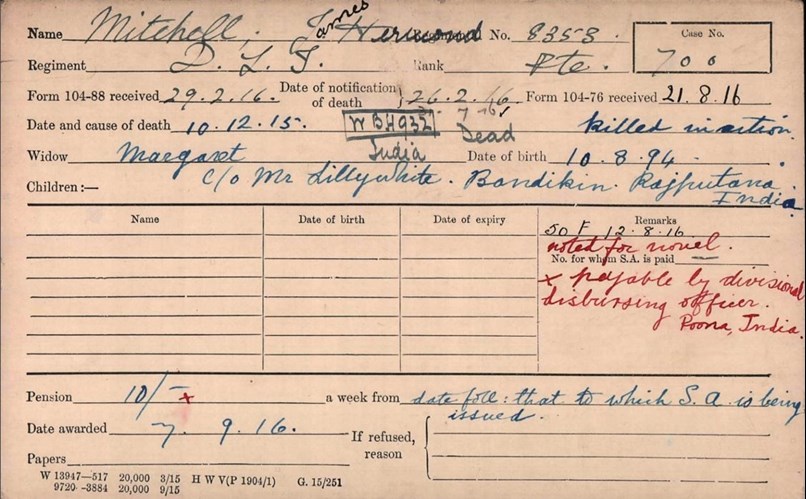 Name Mitchell, James Herwood Regimental No. 8353. Case No.
Regiment D. L. I. Rank Pte. 700
Form 104-88 received 29.2.16. Date of notification of death } 26.2.16 Form 104-76 received 21.8.16
Date and cause of death 10.12.15. W BH932 Dead killed in action.
India
Widow Margaret Date of birth 10.8.94.
Children:— c/o Mr Lillywhite. Bandikin. Rajputana. India.
Name Date of birth Date of expiry Remarks
50 F 12.8.16
noted for novel.
No. for whom S.A. is paid —
x payable by divisional
disbursing officer.
Poona, India.
Pension 10/- x a week from date foll: that to which S.A. is being
issued.
Date awarded 7. 9. 16. If refused, reason
Papers
W 13947—517 20,000 3/15 H W V(P 1904/1) G. 15/251
9720 -3884 20,000 9/15